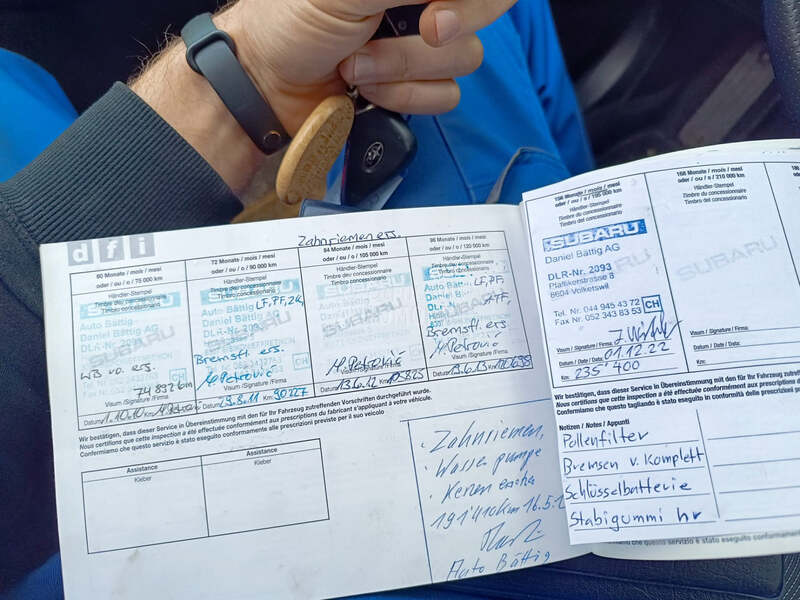 dfi
Zahnriemen ers.
60 Monate / mois / mesi
oder / ou / o / 75 000 km
Händler-Stempel
Timbre du concessionnaire
Timbro del concessionario
SUBARU
Auto Bättig
Daniel Bättig AG
DLR-Nr. 2093
WB vo. ers.
74892 km
Visum /Signature /Firma
Datum
1.10.10
72 Monate / mois / mesi
oder / ou / o / 90 000 km
Händler-Stempel
Timbre du concessionnaire
Timbro del concessionario
LF, PF,
SUBARU
Auto Bättig
Daniel Bättig AG
DLR-Nr. 2093
Bremsfl. ers.
M. Petrović
Visum /Signature /Firma
Datum 29.8.11 Km 90227
84 Monate / mois / mesi
oder / ou / o / 105 000 km
Händler-Stempel
Timbre du concessionnaire
Timbro del concessionario
SUBARU
M. Petrović
Visum /Signature /Firma
Datum 13.6.12 Km
96 Monate / mois / mesi
oder / ou / o / 120 000 km
Händler-Stempel
Timbre du concessionnaire
Timbro del concessionario
LF, PF,
ATF,
SUBARU
Auto Bättig
Bremsfl. ers.
M. Petrović
Visum /Signature /Firma
Datum 13.6.13 Km
Wir bestätigen, dass dieser Service in Übereinstimmung mit den für Ihr Fahrzeug zutreffenden Vorschriften durchgeführt wurde.
Nous certifions que cette inspection a été effectuée conformément aux prescriptions du fabricant s'appliquant à votre véhicule.
Confermiamo che questo tagliando è stato eseguito conformemente alle prescrizioni previste per il suo veicolo
Assistance
Kleber
Assistance
Kleber
· Zahnriemen,
· Wasserpumpe
· Kerzen
191'410km 16.5.
Auto Bättig
156 Monate / mois / mesi
oder / ou / o / 195 000 km
Händler-Stempel
Timbre du concessionnaire
Timbro del concessionario
SUBARU
Daniel Bättig AG
DLR-Nr. 2093
Pfäffikerstrasse 8
8604 Volketswil
Tel. Nr. 044 945 43 72
Fax Nr. 052 343 83 53
CH
Visum / Signature / Firma
Datum / Date / Data: 01.12.22
Km: 235'400
168 Monate / mois / mesi
oder / ou / o / 210 000 km
Händler-Stempel
Timbre du concessionnaire
Timbro del concessionario
SUBARU
Visum / Signature / Firma
Datum / Date / Data:
Km:
Wir bestätigen, dass dieser Service in Übereinstimmung mit den für Ihr Fahrzeug
Nous certifions que cette inspection a été effectuée conformément aux prescriptions de
Confermiamo che questo tagliando è stato eseguito in conformità delle prescrizioni
Notizen / Notes / Appunti
Pollenfilter
Bremsen v. Komplett
Schlüsselbatterie
Stabigummi hr